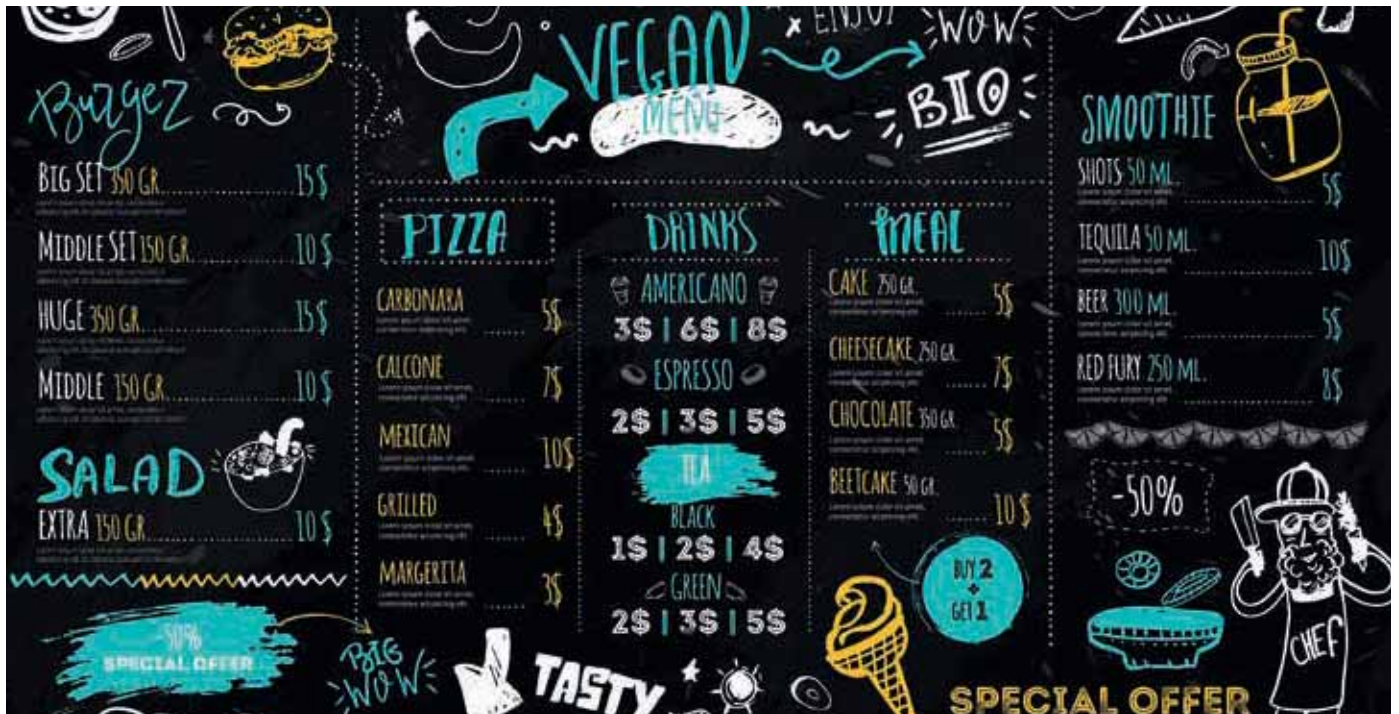 Burger
BIG SET 350 GR. 15 $
MIDDLE SET 150 GR. 10 $
HUGE 350 GR. 15 $
MIDDLE 150 GR. 10 $
SALAD
EXTRA 150 GR 10 $
-50%
SPECIAL OFFER
BIG
WOW
ENJOY
VEGAN
MENU
WOW
BIO
PIZZA
CARBONARA 5$
CALCONE 7$
MEXICAN 10$
GRILLED 4$
MARGERITA 3$
TASTY
DRINKS
AMERICANO
3$ | 6$ | 8$
ESPRESSO
2$ | 3$ | 5$
TEA
BLACK
1$ | 2$ | 4$
GREEN
2$ | 3$ | 5$
MEAL
CAKE 250 GR. 5$
CHEESECAKE 250 GR. 7$
CHOCOLATE 350 GR. 5$
BEETCAKE 50 GR. 10 $
BUY 2
+
GET 1
SPECIAL OFFER
SMOOTHIE
SHOTS 50 ML. 5$
TEQUILA 50 ML. 10$
BEER 300 ML. 5$
RED FURY 250 ML. 8$
-50%
CHEF